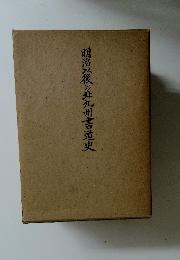 明治以後の北九州書道史